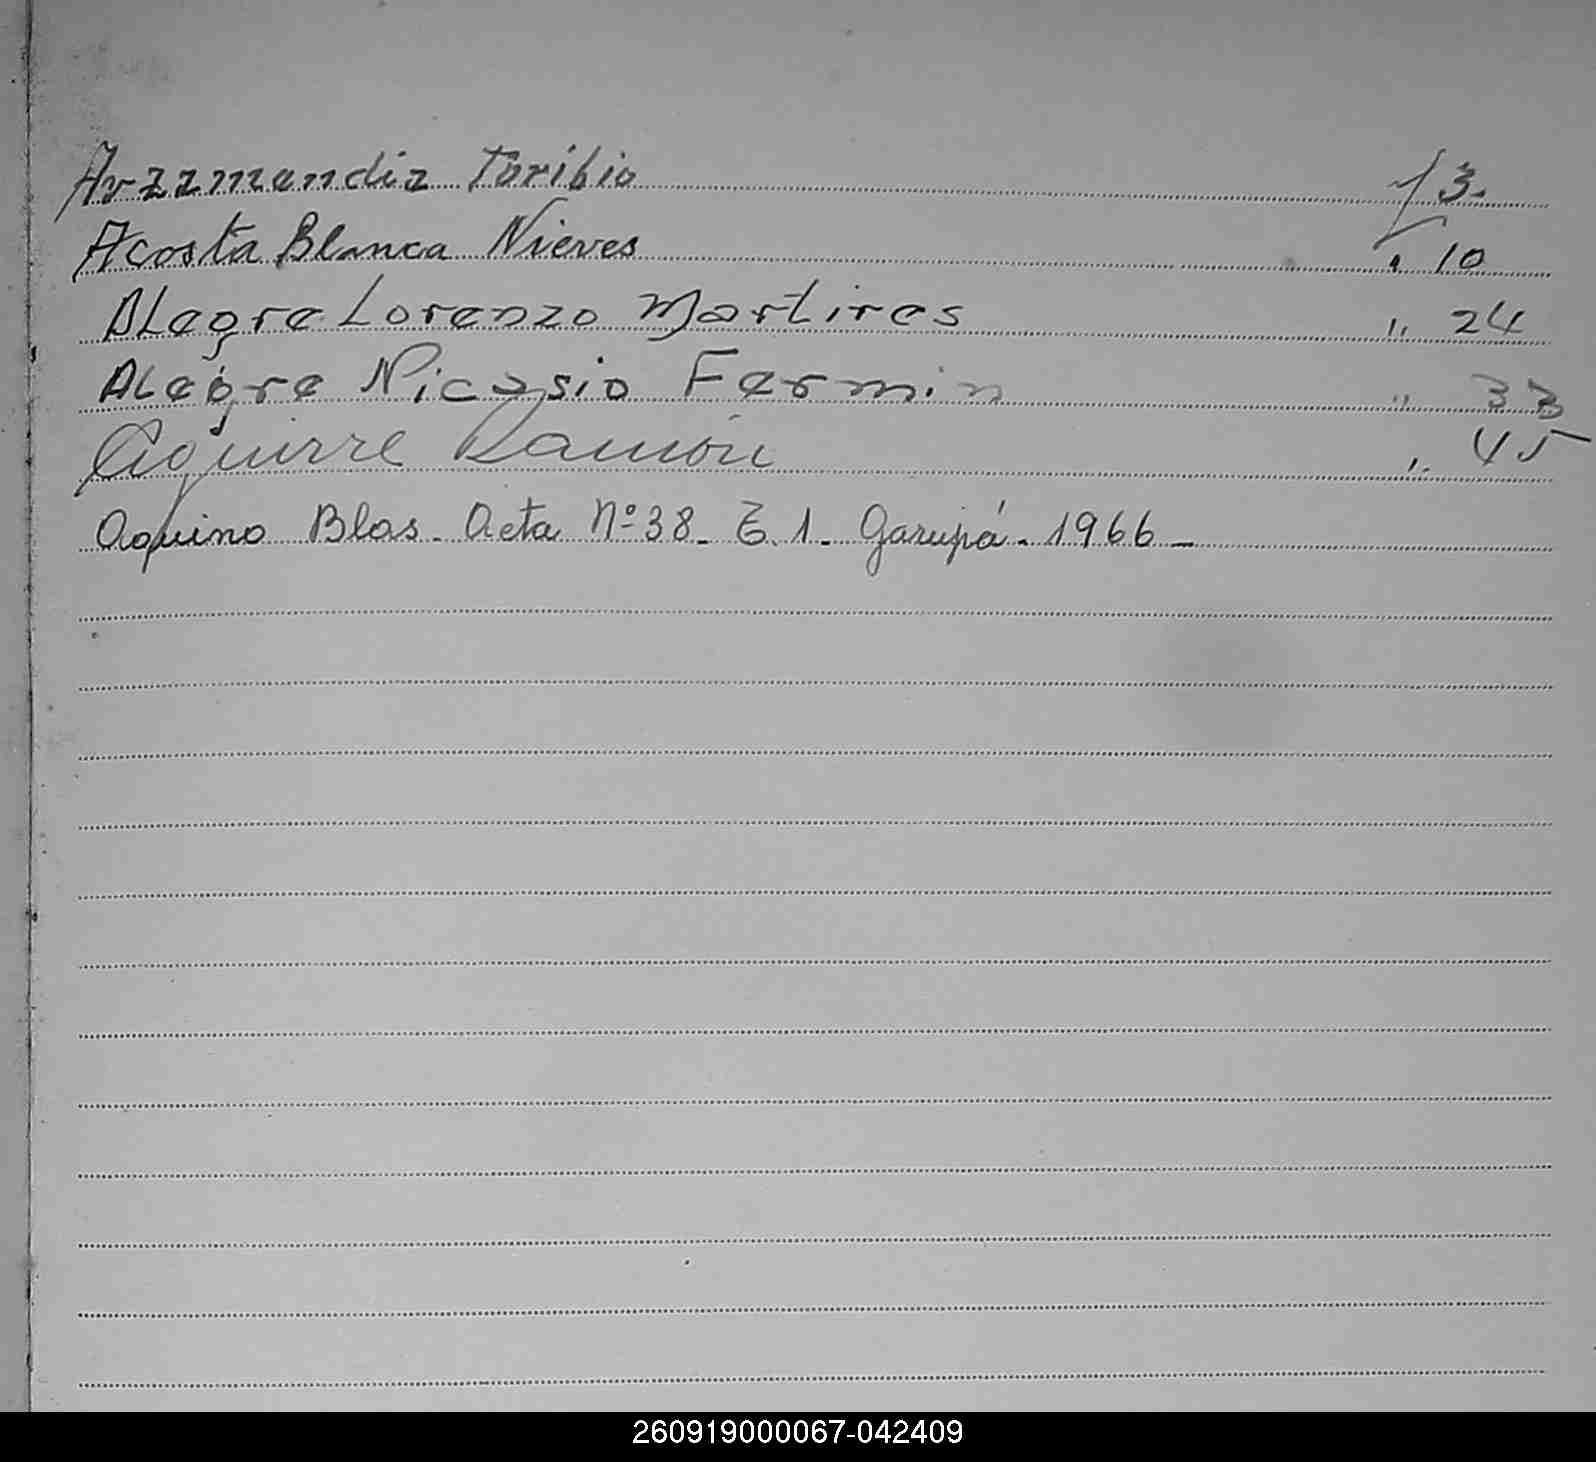 Arzamendia Toribio f 3.
Acosta Blanca Nieves " 10
Alegre Lorenzo Martires " 24
Alegre Nicasio Fermin " 33
Aguirre Ramón " 45
Aquino Blas. Acta Nº 38_ T. 1. Garupá. 1966_
260919000067-042409